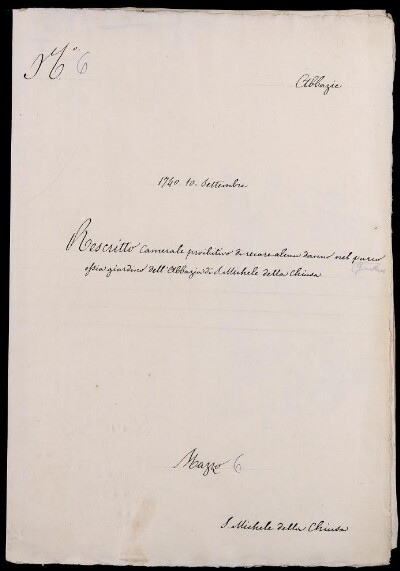 N.º 6
Abbazie
1740 10 Settembre
Rescritto Camerale proibitivo di recare alcun danno nel parco
ossia giardino dell'Abbazia di S. Michele della Chiusa
Mazzo 6
S. Michele della Chiusa